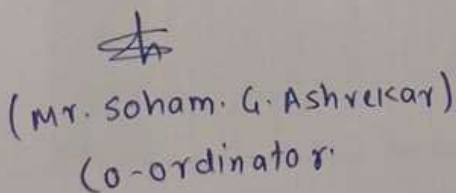 (Mr. Soham. G. Ashrekar)
Co-ordinator.